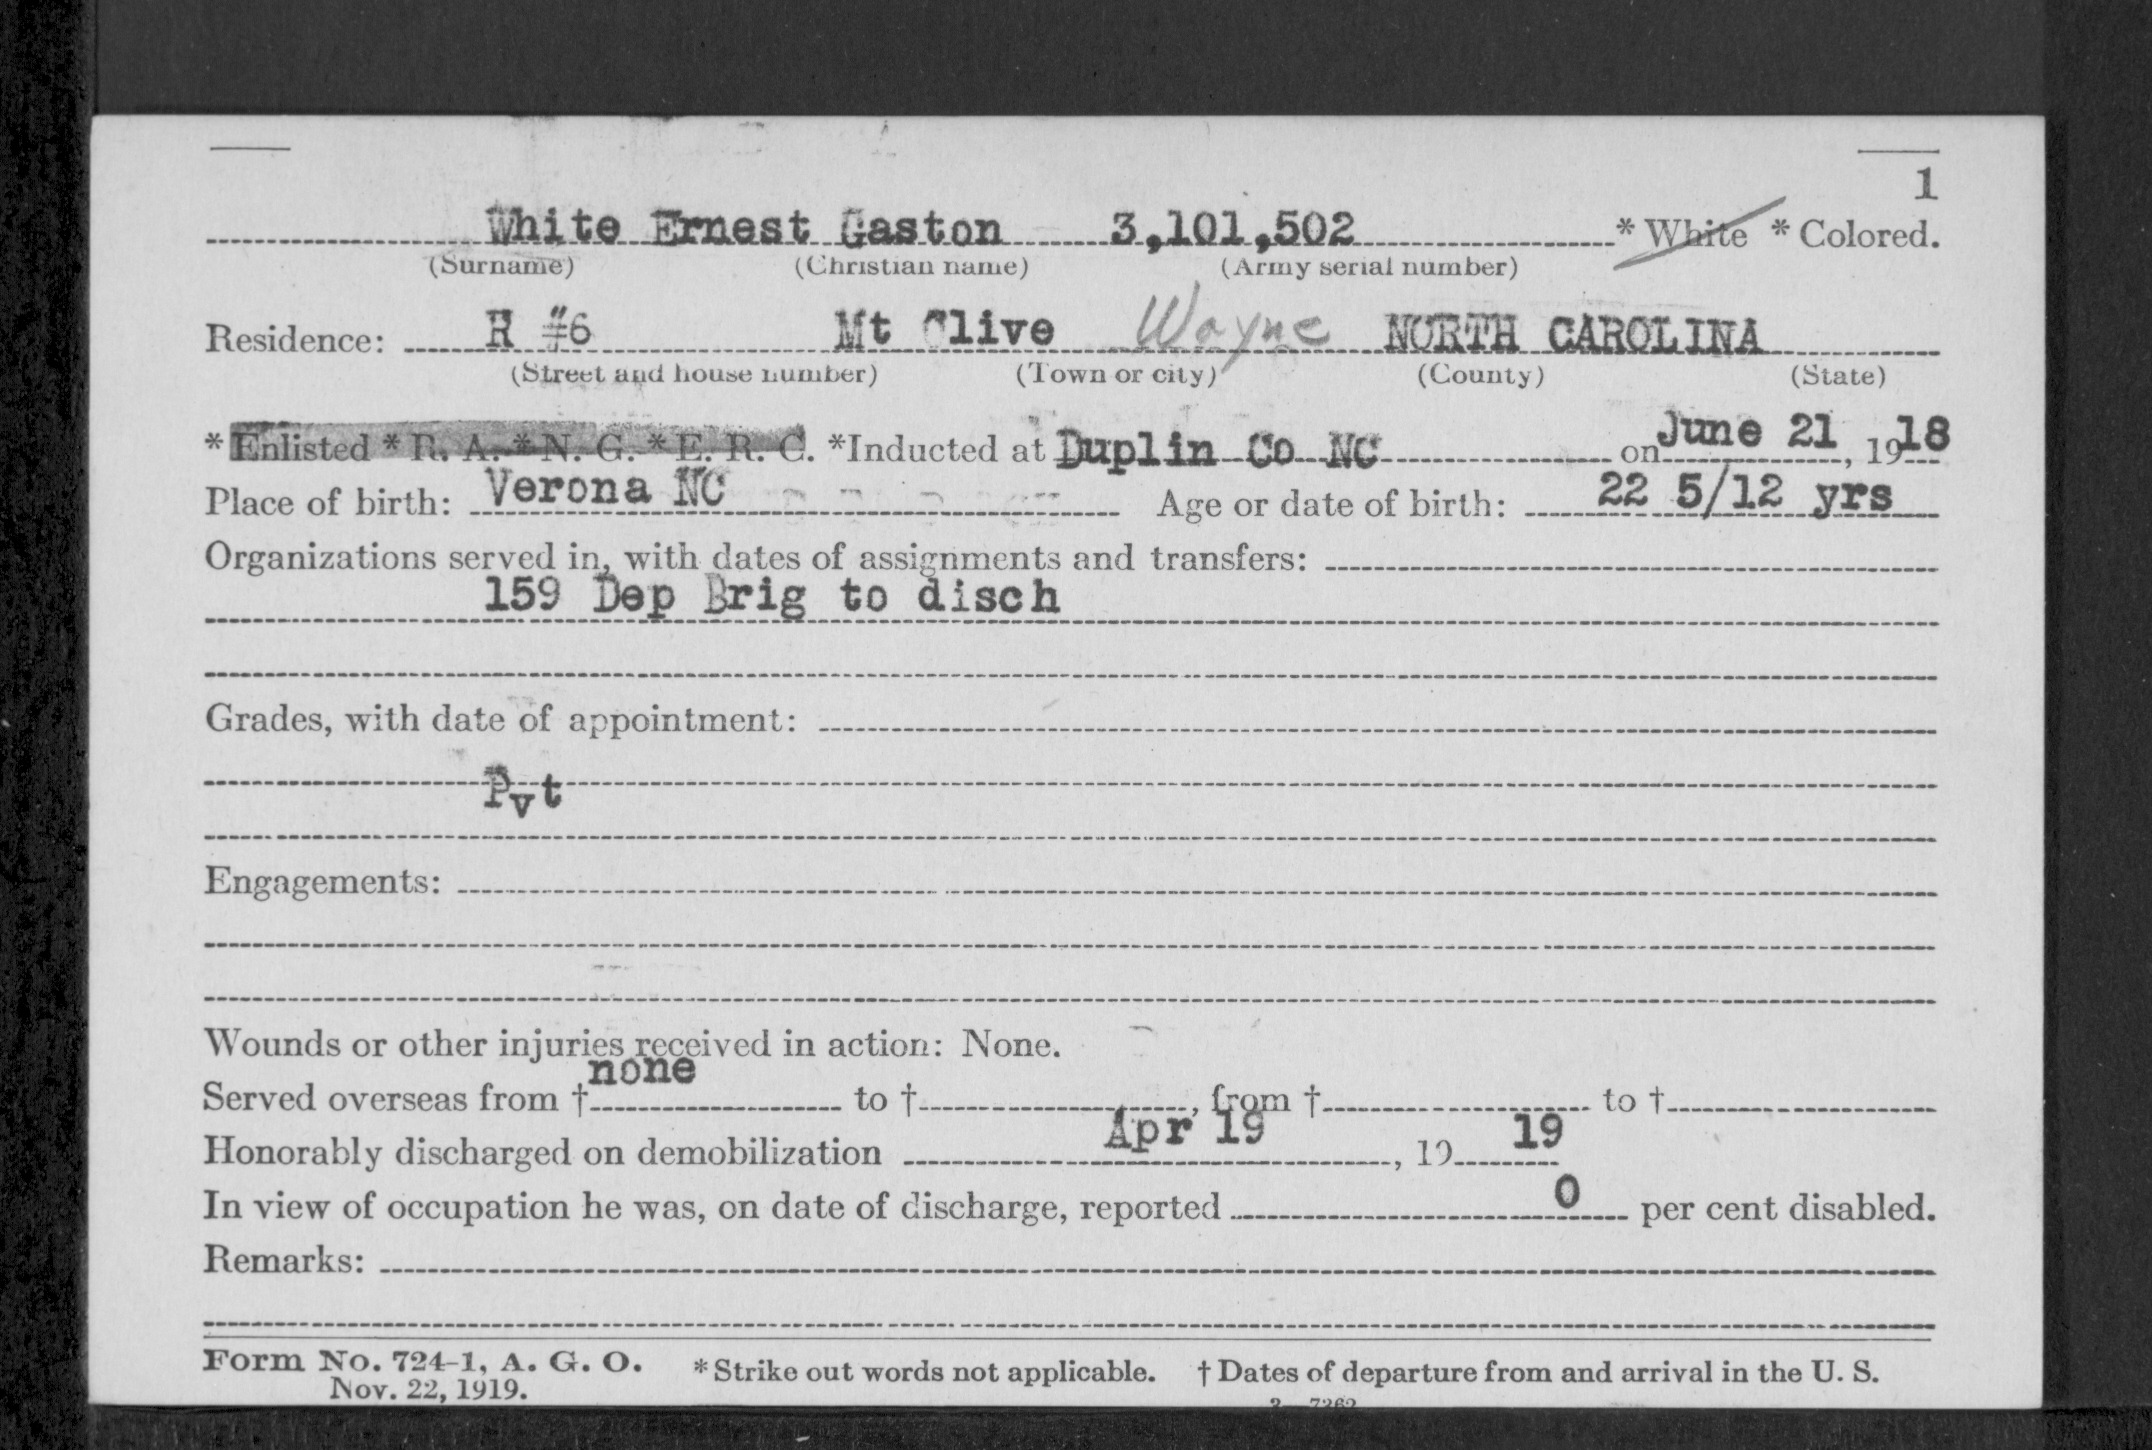 1
White Ernest Gaston 3,101,502 * White * Colored.
(Surname) (Christian name) (Army serial number)
Residence: R #6 Mt Olive Wayne NORTH CAROLINA
(Street and house number) (Town or city) (County) (State)
* Enlisted * R. A. * N. G. * E. R. C. *Inducted at Duplin Co NC on June 21, 1918
Place of birth: Verona NC Age or date of birth: 22 5/12 yrs
Organizations served in, with dates of assignments and transfers:
159 Dep Brig to disch
Grades, with date of appointment:
Pvt
Engagements:
Wounds or other injuries received in action: None.
none
Served overseas from † to †, from † to †
Honorably discharged on demobilization Apr 19, 19 19
In view of occupation he was, on date of discharge, reported 0 per cent disabled.
Remarks:
Form No. 724-1, A. G. O. * Strike out words not applicable. † Dates of departure from and arrival in the U. S.
Nov. 22, 1919.